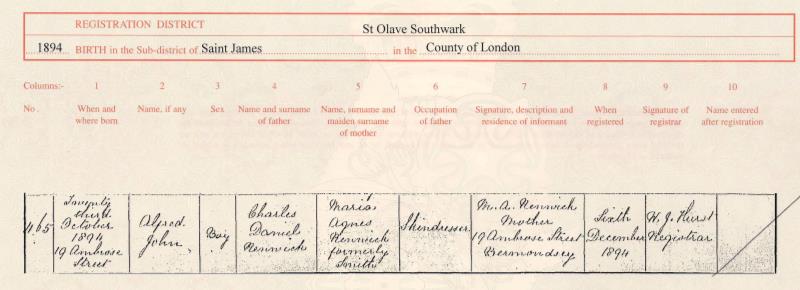 REGISTRATION DISTRICT
St Olave Southwark
1894 BIRTH in the Sub-district of Saint James in the County of London
Columns:- 1 2 3 4 5 6 7 8 9 10
No. When and where born Name, if any Sex Name and surname of father Name, surname and maiden surname of mother Occupation of father Signature, description and residence of informant When registered Signature of registrar Name entered after registration
465
Twenty
third
October
1894
19 Ambrose
Street
Alfred
John
Boy
Charles
Daniel
Renwick
Maria
Agnes
Renwick
formerly
Smith
Skindresser
M. A. Renwick
Mother
19 Ambrose Street
Bermondsey
Sixth
December
1894
H. J. Hurst
Registrar